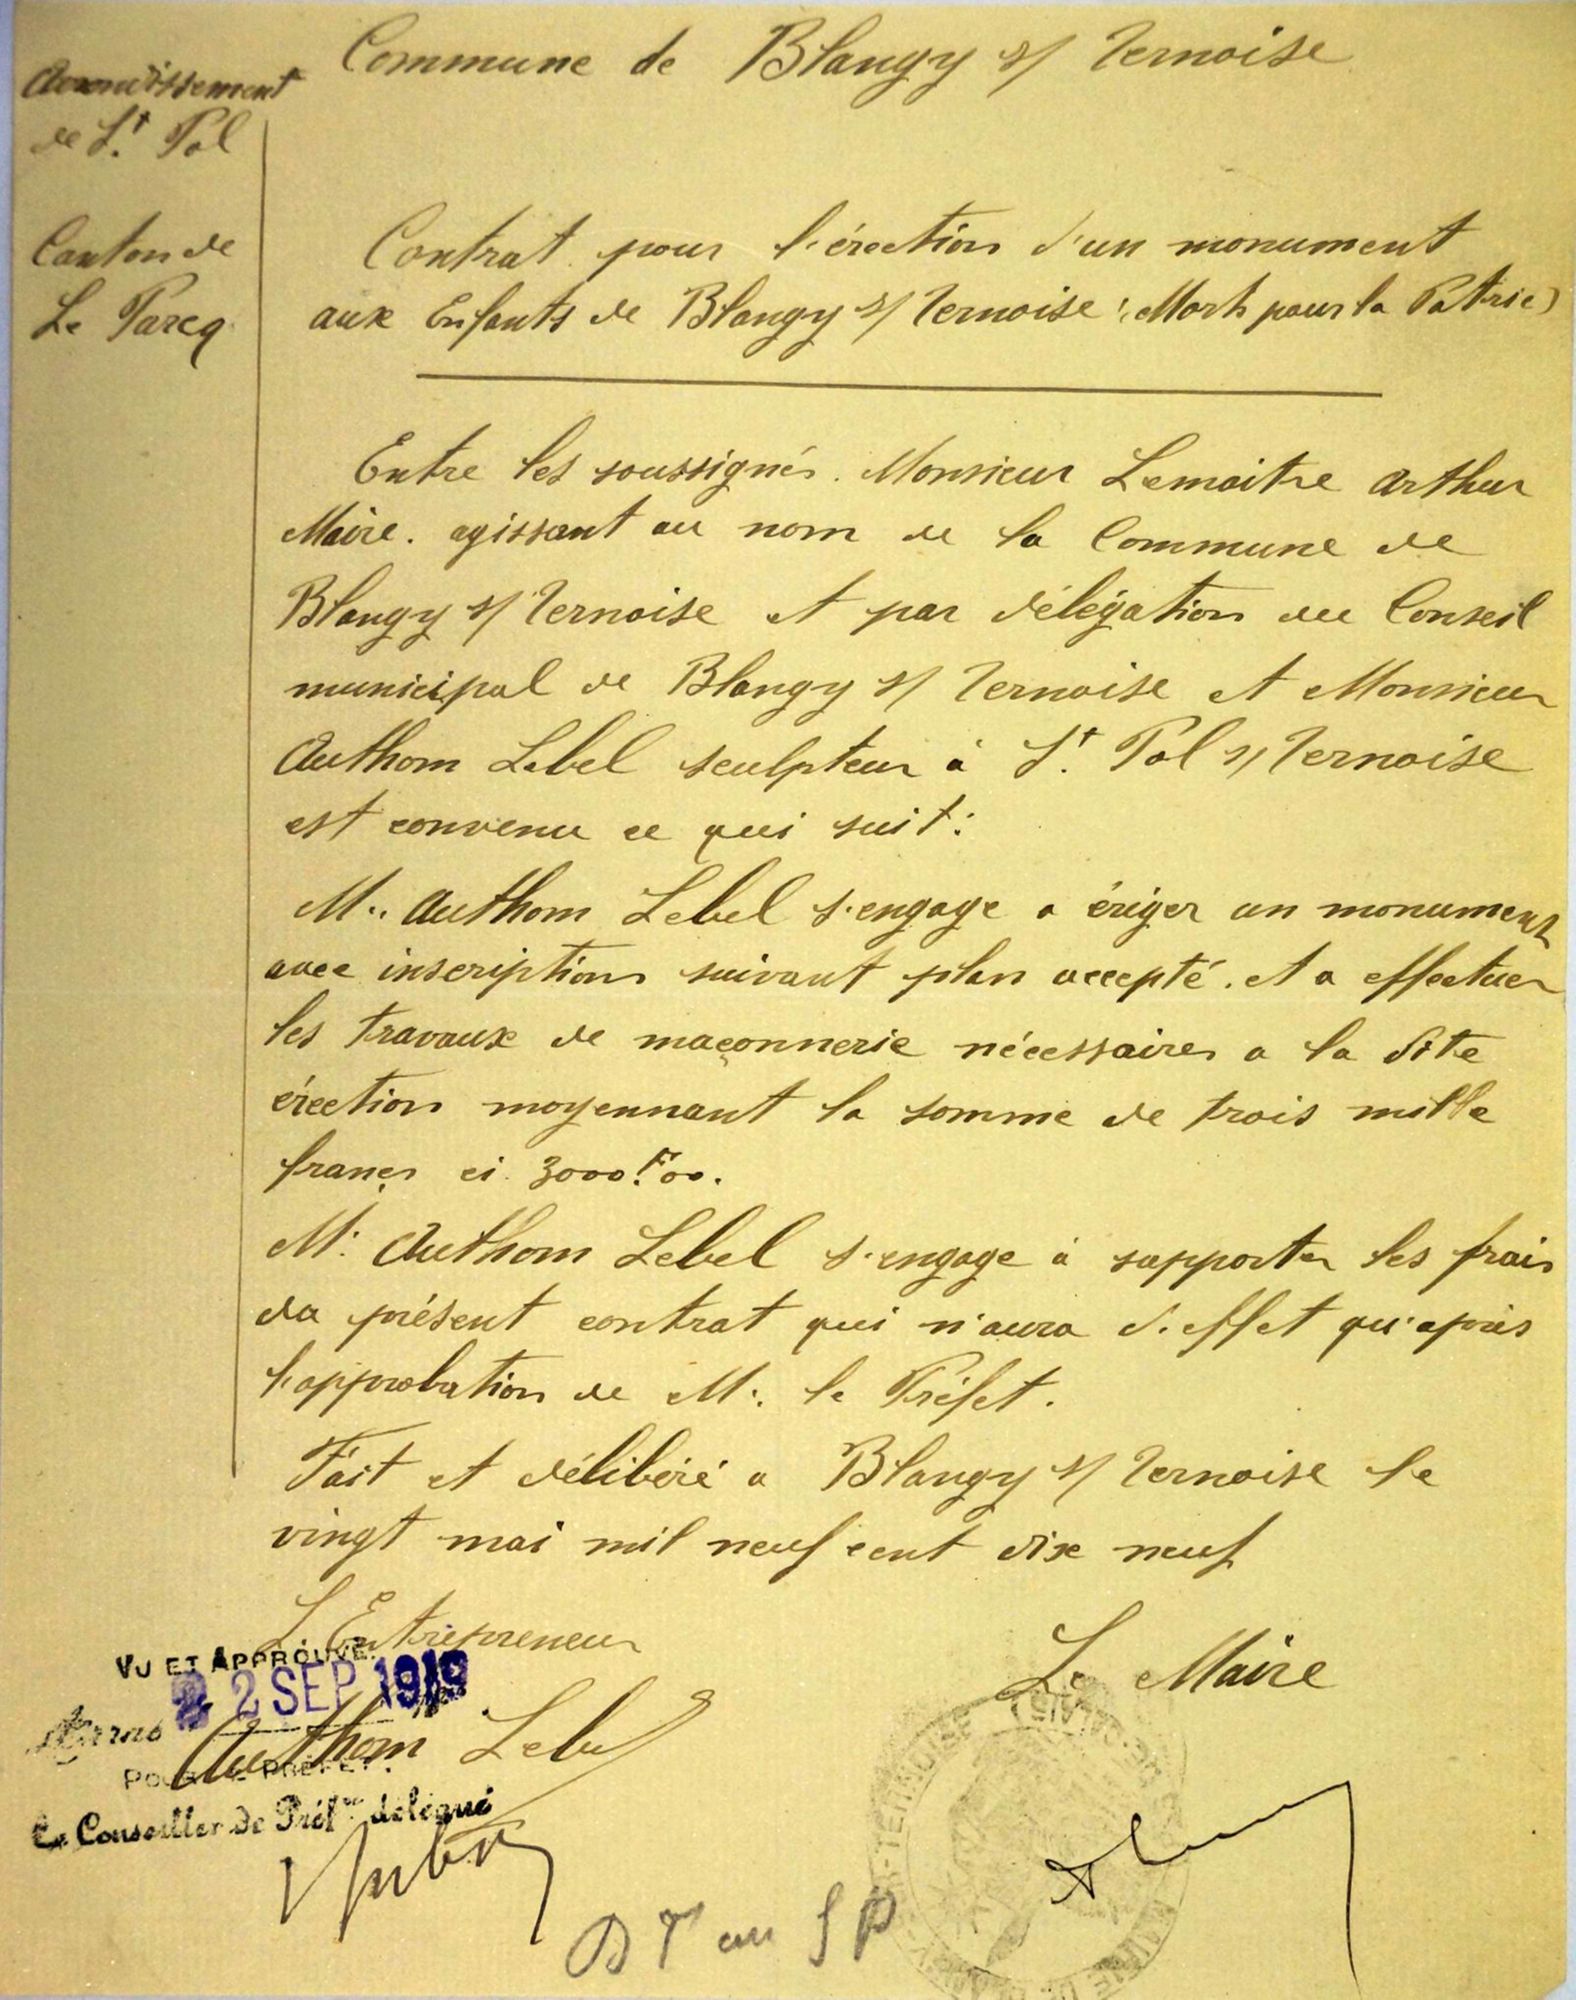 Commune de Blangy s/ Ternoise
Arrondissement
de St. Pol
Canton de
Le Parcq
Contrat pour l'érection d'un monument
aux Enfants de Blangy s/ Ternoise (Morts pour la Patrie)
Entre les soussignés. Monsieur Lemaitre Arthur
Maire. agissant au nom de la Commune de
Blangy s/ Ternoise et par délégation du Conseil
municipal de Blangy s/ Ternoise et Monsieur
Authom Lebel sculpteur à St. Pol s/ Ternoise
est convenu ce qui suit:
M. Authom Lebel s'engage a ériger un monument
avec inscriptions suivant plan accepté. et a effectuer
les travaux de maçonnerie nécessaires a la dite
érection moyennant la somme de trois mille
francs ci. 3000.Fr00.
M. Authom Lebel s'engage à supporter les frais
du présent contrat qui n'aura d'effet qu'après
l'approbation de M. le Préfet.
Fait et délibéré a Blangy s/ Ternoise le
vingt mai mil neuf cent dix neuf
L'Entrepreneur
Le Maire
VU ET APPROUVÉ
2 SEP 1919
Authom Lebel
POUR LE PRÉFET.
Le Conseiller de Préfre délégué